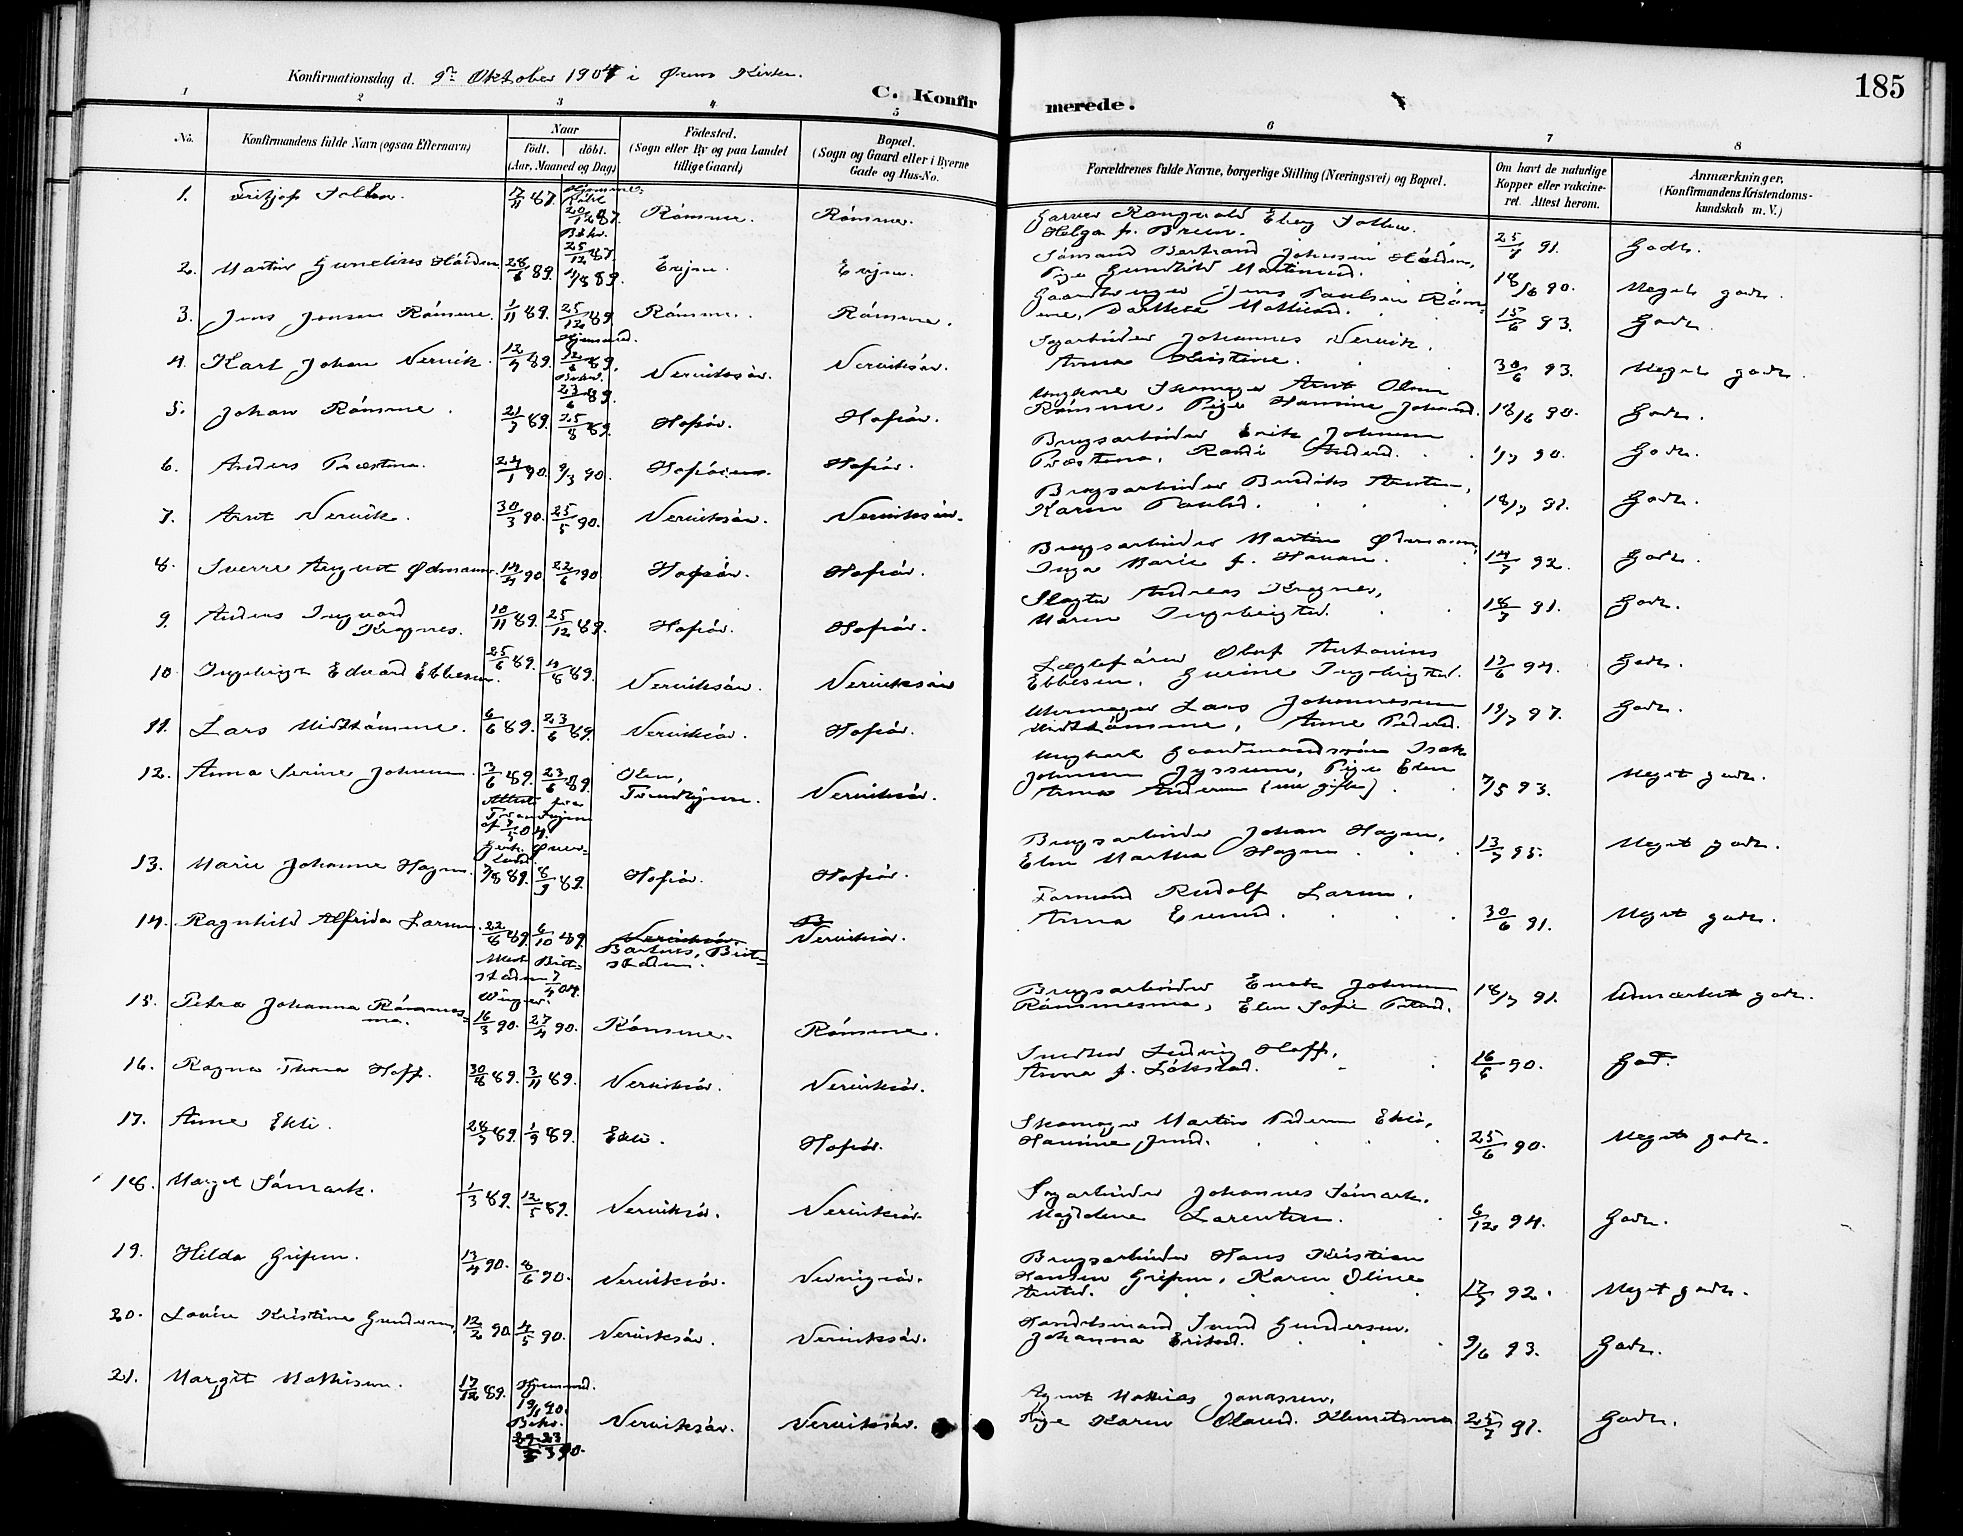 Konfirmationsdag d. 9de Oktober 1904 i Ørens Kirke.
C. Konfirmerede.
185
1 2 3 4 5 6 7 8
No.
Konfirmandens fulde Navn (ogsaa Efternavn)
Naar
født. døbt.
(Aar, Maaned og Dag)
Fødested.
(Sogn eller By og paa Landet
tillige Gaard)
Bopæl.
(Sogn og Gaard eller i Byerne
Gade og Hus-No.
Forældrenes fulde Navne, borgerlige Stilling (Næringsvei) og Bopæl.
Om havt de naturlige
Kopper eller vakcine-
ret. Attest herom.
Anmærkninger,
(Konfirmandens Kristendoms-
kundskab m. V.)
1. 17/11 87. Hjemme- 20/12 87. 25/12 87. Rømme. Rømme.
Garver Elieg
Helga f. Brun. 25/7 91. Godt.
2. Martin 28/6 89. 11/8 89.
Sømand Bertrand Johnsen
Pige Gunhild Martinsd. 18/6 90. Meget godt.
3. Jens Jensen Rømme. 1/11 89. 25/12 89. Rømme. Rømme.
Gaardbruger Jens Paulsen Røm-
me, Dorthea Mathisd. 15/6 93. Godt.
4. Karl Johan Nervik. 12/4 89. Hjemmed. 12/6 89. 23/6 89. Nerviksør. Nerviksør.
Sagarbeider Johannes Nervik,
Anna Kristine. 30/6 93. Meget godt.
5. Johan Rømme. 21/7 89. 25/8 89. Hofsør. Hofsør.
Ungkarl Skomager Arnt Olsen
Rømme, Pige Hansine Johansd. 18/6 90. Godt.
6. Anders Præstmo. 24/1 90. 9/3 90. Hofsør. Hofsør.
Brugsarbeider Erik Johnsen
Præstmo, Randi Andersd. 1/7 90. Godt.
7. Arnt Nervik. 30/3 90. 25/5 90. Nerviksør. Nerviksør.
Brugsarbeider Bendiks Arntsen,
Karen Paulsd. 18/7 91. Godt.
8. Sverre August Ødmann. 14/4 90. 22/6 90. Hofsør. Hofsør.
Brugsarbeider Martin Ødmann,
Inga Marie f. Hanan. 14/7 92. Godt.
9. Anders Ingvard
Krognes. 10/11 89. 25/12 89. Hofsør. Hofsør.
Slagter Andreas Krognes,
Maren Ingebrigtsd. 18/7 91. Godt.
10. Ingebrigt Edvard Ebbesen. 25/6 89. 4/8 89. Nerviksør. Nerviksør
Lægtefører Oluf Antonius
Ebbesen, Gurine Ingebrigtsd. 17/6 94. Godt.
11. Lars Midtømme. 6/6 89. 23/6 89. Nerviksør. Hofsør.
Uhrmager Lars Johannesen
Midtømme, Anne Pedersd. 19/7 97. Godt.
12. Anna Serine Johnsen. 3/6 89. 23/6 89. Trondhjem. Nerviksør.
Attest fra
Trondhjem
Ungkarl Gaardmandssøn Isak
Johnsen Gyssum, Pige Elen
Anna Andersen (nu gifte). 7/5 93. Meget godt.
13. Marie Johanne Hagen. 7/8 89. 8/9 89. Hofsør. Hofsør.
Brugsarbeider Johan Hagen,
Elen Martha Hagen. 13/7 95. Meget godt.
14. Ragnhild Alfrida Larsen. 22/8 89. 6/10 89. Nerviksør. Nerviksør.
Bartnes, Beit-
staden.
Attest Beit-
staden 7/4 04.
Formand Rudolf Larsen,
Anna 30/6 91. Meget godt.
15. Petra Johanna Rømmes-
mo. 16/3 90. 27/4 90. Rømme. Rømme.
Brugsarbeider Enok Johnsen
Rømmesmo, Elen Sofie 18/7 91. Udmærket godt.
16. Ragna Thora Hoff. 30/8 89. 3/11 89. Nerviksør. Nerviksør.
Smedked Ludvig Hoff,
Anna f. Løkstad. 16/6 90. God.
17. Anne Ekli. 28/7 89. 1/9 89. Ekli. Hofsør.
Skomager Martin Pedersen Ekli,
Hansine Jensd. 25/6 90. Meget godt.
18. Marget Sømark. 1/3 89. 12/5 89. Nerviksør. Nerviksør.
Sagarbeider Johannes Sømark,
Magdalene Larentsen. 6/12 94. Godt.
19. Hilda Gripsen. 13/4 90. 8/6 90. Nerviksør. Nervigsør.
Brugsarbeider Hans Kristian
Hansen Gripsen, Karen Oline
Arntsd. 17/7 92. Meget godt.
20. Lovise Kristine Gundersen, 12/2 90. 4/5 90. Nerviksør. Nerviksør.
Handelsmand Svend Gundersen,
Johanna Eriksd. 9/6 93. Godt.
21. Margit Mathisen. 17/12 89. Hjemmed. 19/1 90. 23/3 90. Nerviksør. Nerviksør.
Agent Mathias Jonassen,
Pige Karen Olausd. Klemetsmo 25/7 91. Godt.